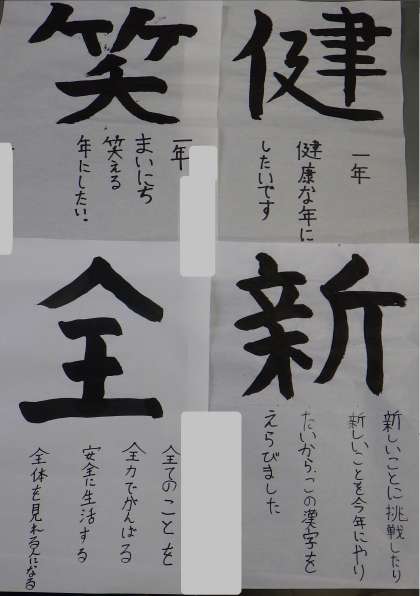 健
一年
健康な年に
したいです
笑
一年
まいにち
笑える
年にしたい。
新
新しいことに挑戦したり
新しいことを今年にやり
たいから、この漢字を
えらびました
全
全てのことを
全力でがんばる
安全に生活する
全体を見れる人になる